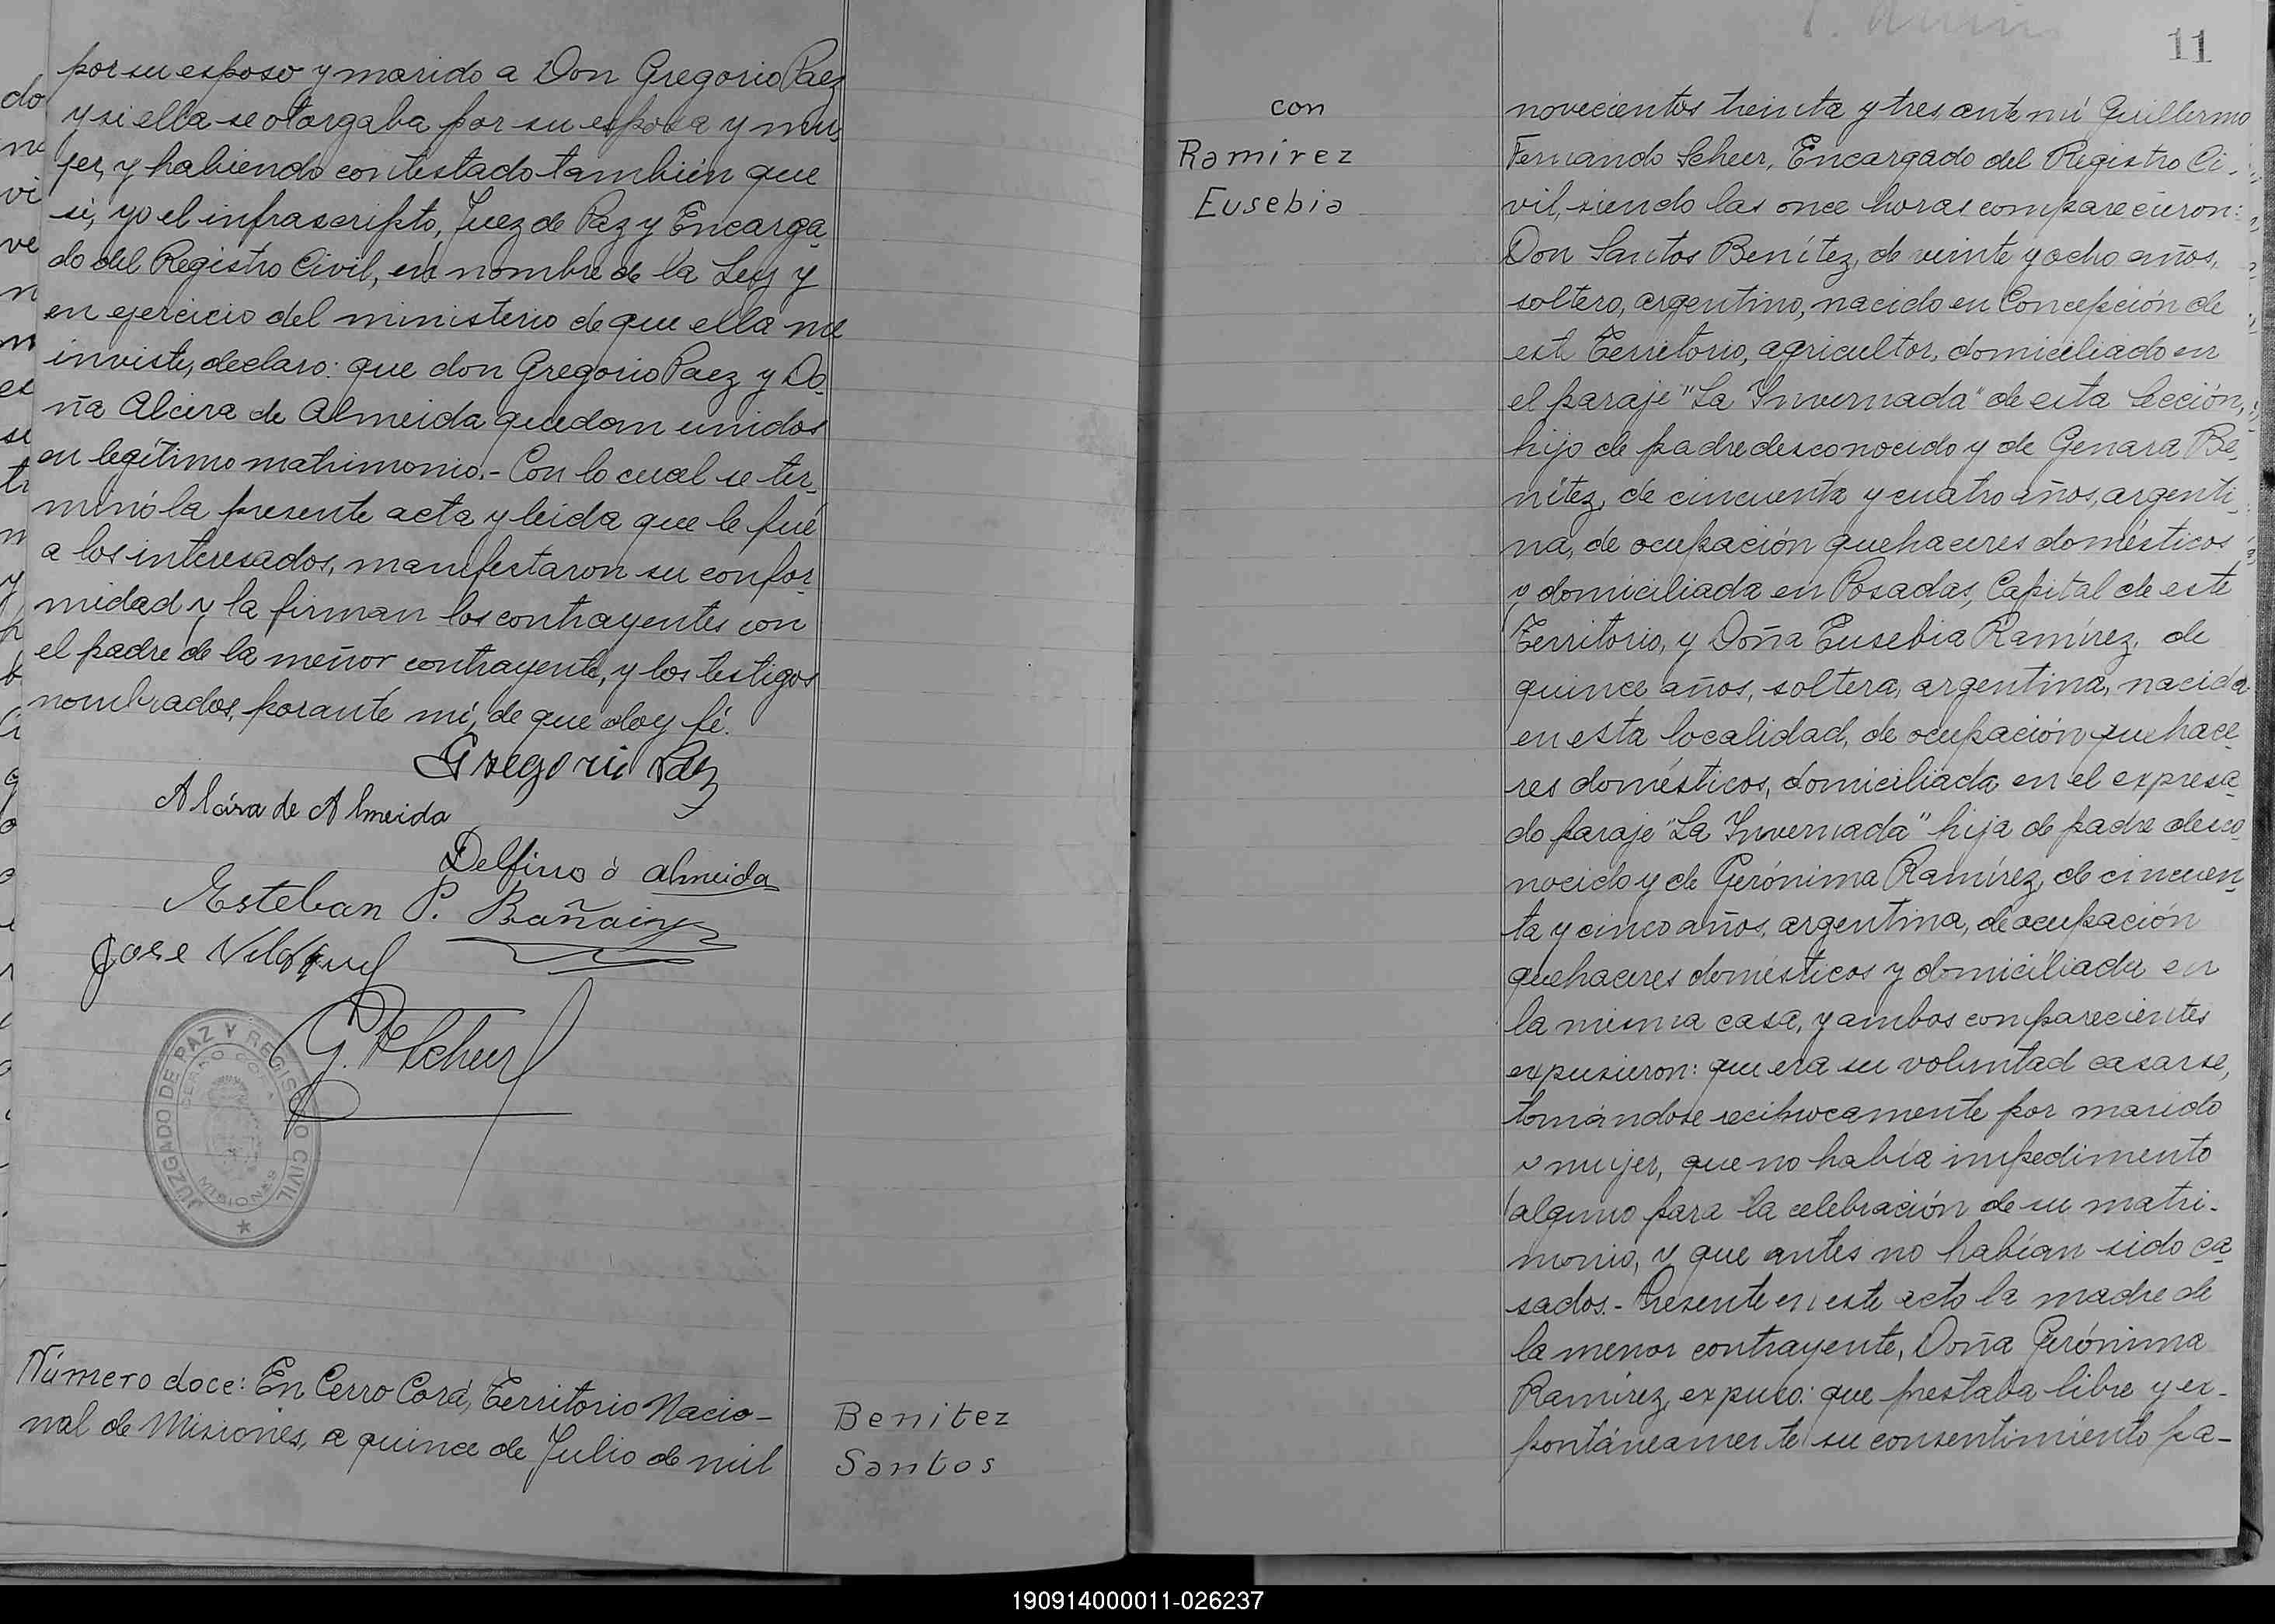 por su esposo y marido a Don Gregorio Paez
y si ella se otorgaba por su esposa y mu-
jer, y habiendo contestado también que
si, yo el infrascripto, Juez de Paz y Encarga-
do del Registro Civil, en nombre de la Ley y
en ejercicio del ministerio de que ella me
inviste, declaro: que don Gregorio Paez y Do-
ña Alcira de Almeida quedan unidos
en legítimo matrimonio.- Con lo cual se ter-
minó la presente acta y leida que le fué
a los interesados, manifestaron su confor-
midad y la firman los contrayentes con
el padre de la menor contrayente, y los testigos
nombrados, por ante mí, de que doy fé.
Gregorio Paez
Alcira de Almeida
Delfino d Almeida
Esteban P.
Jose
G. F. Scheer
JUZGADO DE PAZ Y REGISTRO CIVIL
CERRO CORÁ
MISIONES
Número doce: En Cerro Corá, Territorio Nacio-
nal de Misiones, a quince de Julio de mil
Benitez
Santos
11
con
Ramirez
Eusebia
novecientos treinta y tres, ante mí Guillermo
Fernando Scheer, Encargado del Registro Ci-
vil, siendo las once horas comparecieron:
Don Santos Benítez, de veinte y ocho años,
soltero, argentino, nacido en Concepción de
este Territorio, agricultor, domiciliado en
el paraje "La Invernada" de esta Sección,
hijo de padre desconocido y de Genara Be-
nítez, de cincuenta y cuatro años, argenti-
na, de ocupación quehaceres domésticos
y domiciliada en Posadas, Capital de este
Territorio, y Doña Eusebia Ramírez, de
quince años, soltera, argentina, nacida
en esta localidad, de ocupación quehace-
res domésticos, domiciliada en el expresa-
do paraje "La Invernada" hija de padre desco-
nocido y de Gerónima Ramírez, de cincuen-
ta y cinco años, argentina, de ocupación
quehaceres domésticos y domiciliada en
la misma casa, y ambos comparecientes
expusieron: que era su voluntad casarse,
tomándose recíprocamente por marido
y mujer, que no había impedimento
alguno para la celebración de su matri-
monio, y que antes no habían sido ca-
sados.- Presente en este acto la madre de
la menor contrayente, Doña Gerónima
Ramírez, expuso: que prestaba libre y es-
pontáneamente su consentimiento pa-
190914000011-026237